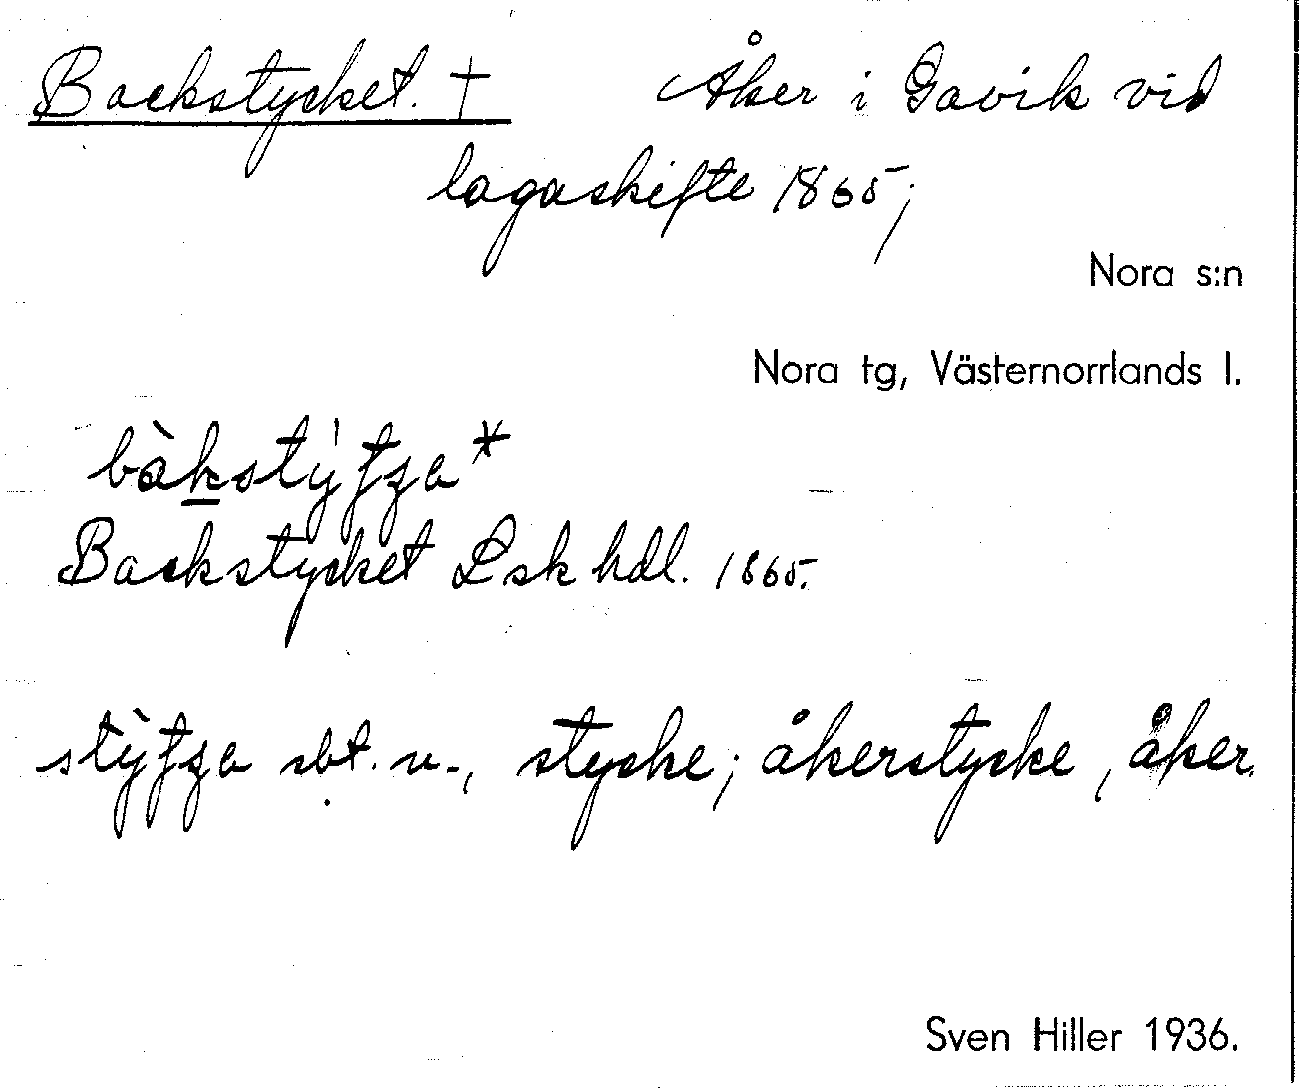 Backstycket. † Åker i Gavik vid
lagaskifte 1865;
Nora s:n
Nora tg, Västernorrlands l.
Backstycket Lsk hdl. 1865.
sbt. n., stycke; åkerstycke, åker.
Sven Hiller 1936.